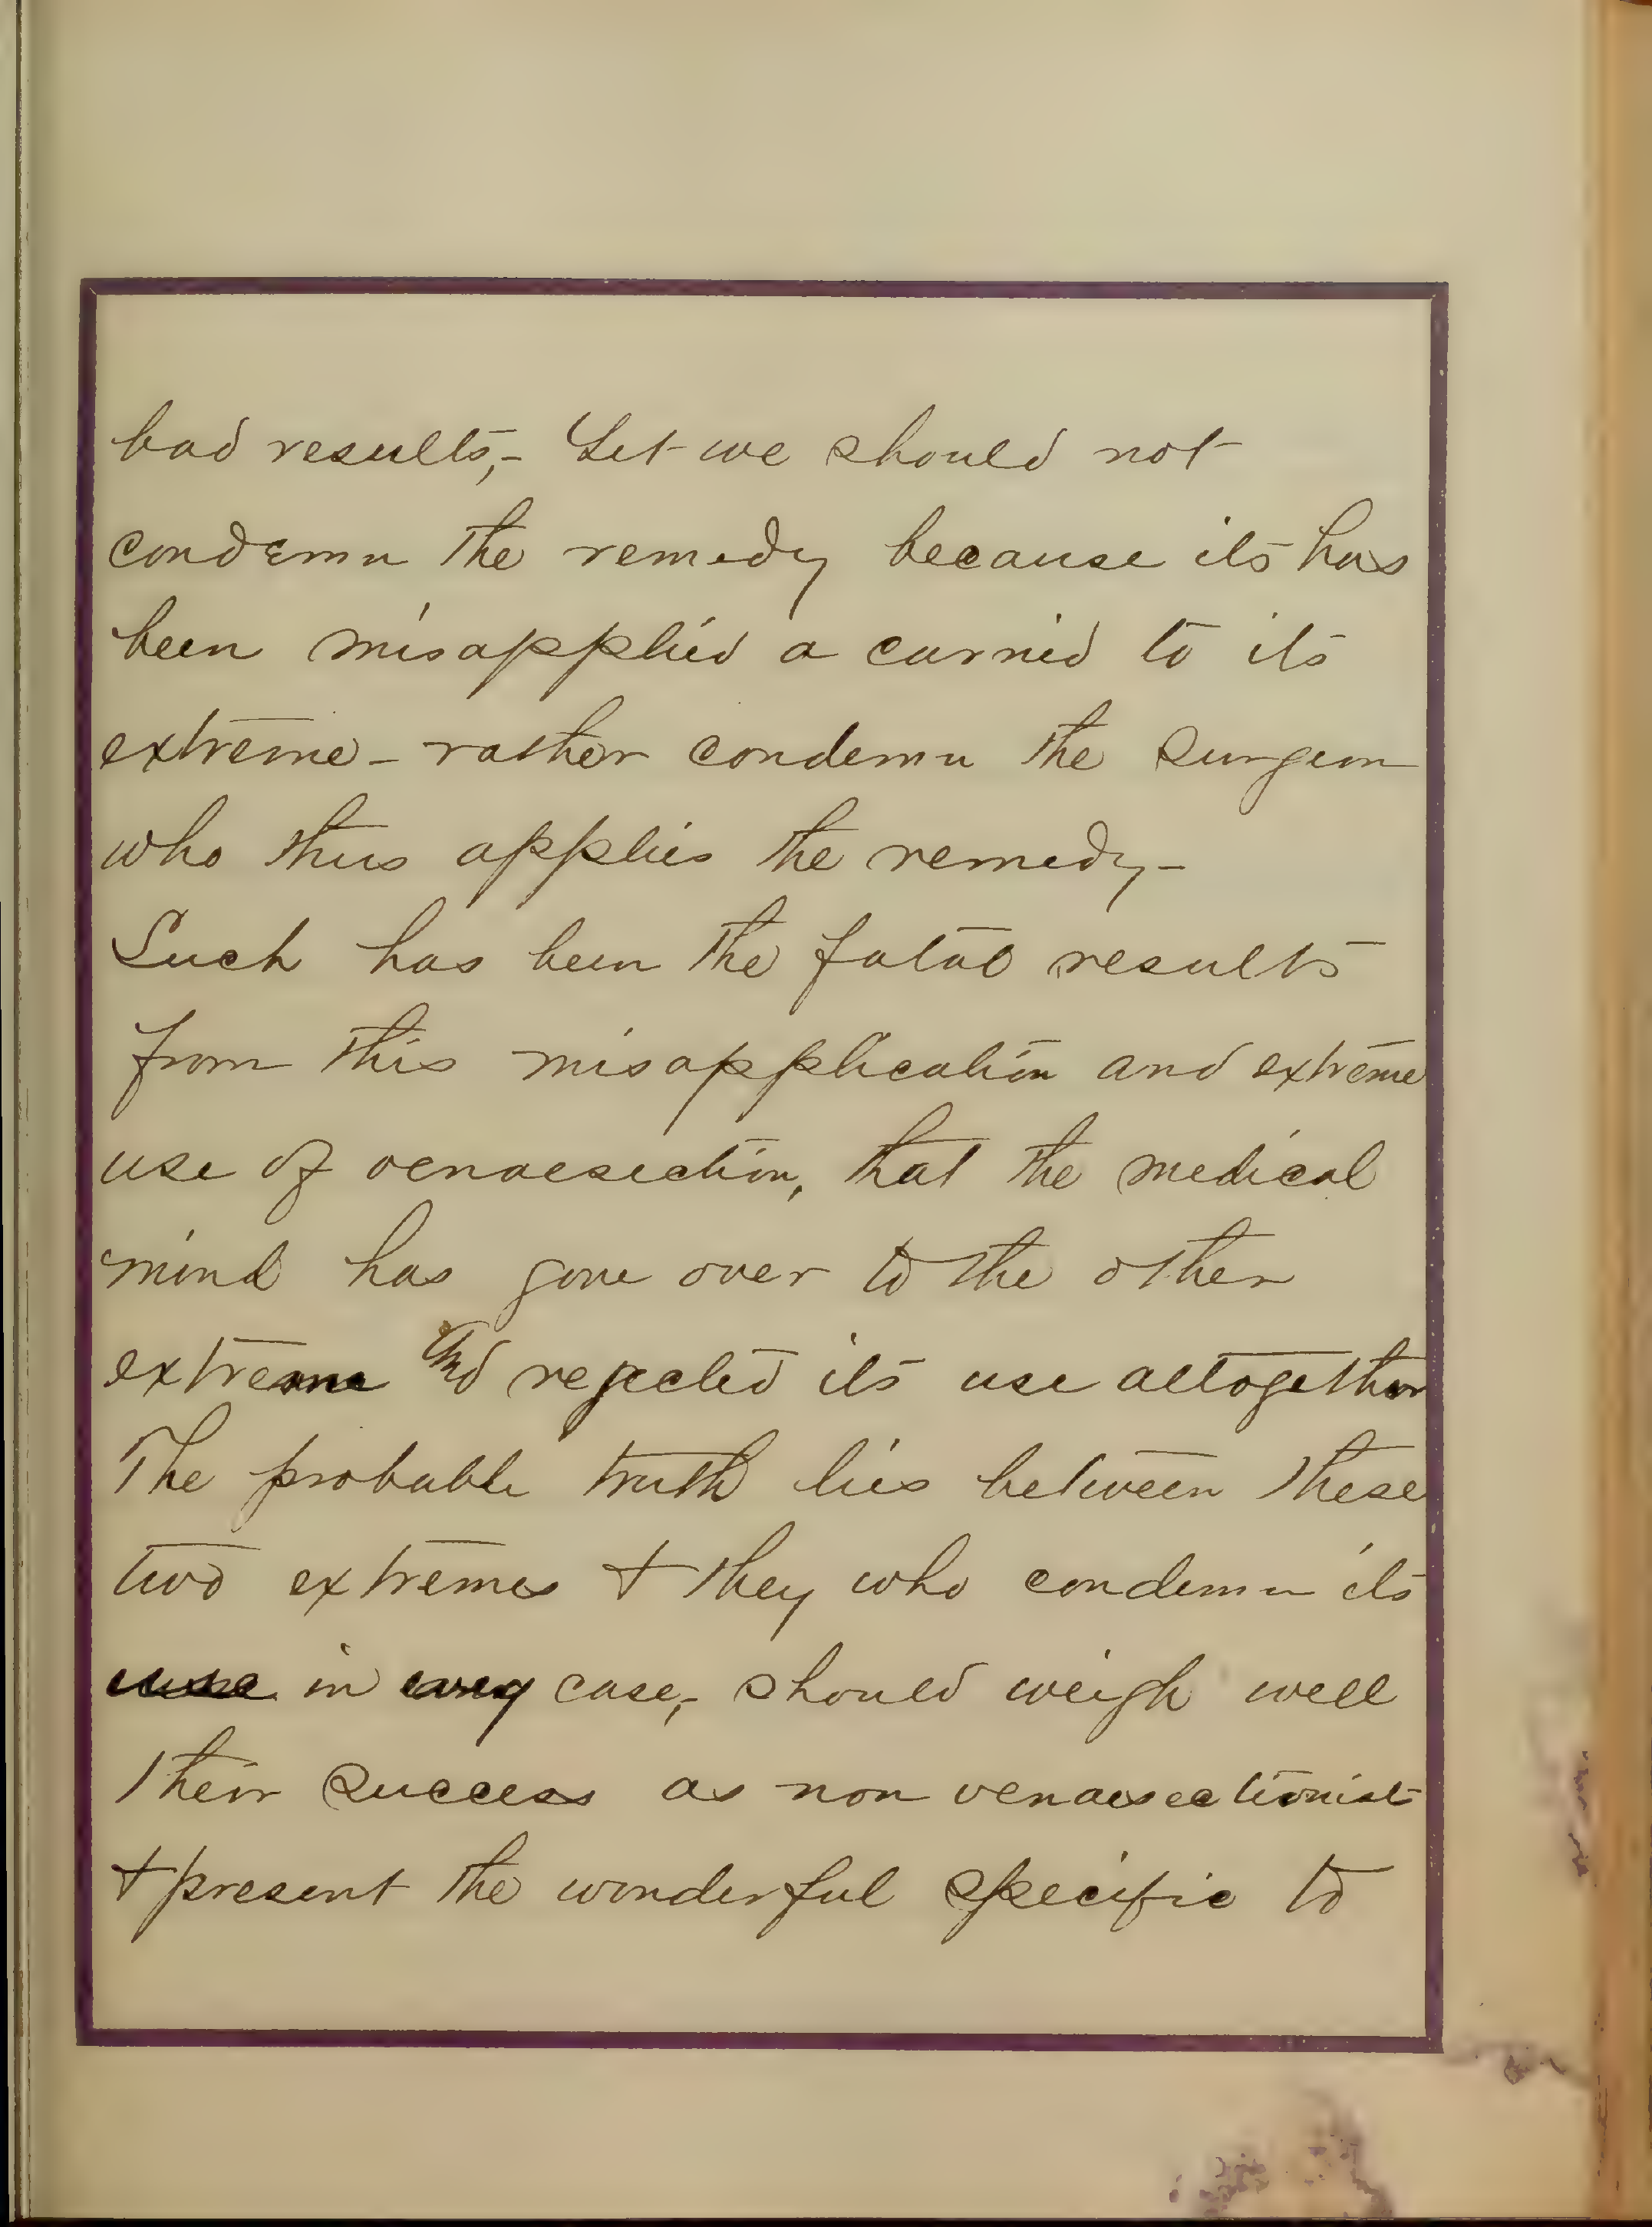 bad results,- Yet we should not
condemn the remedy because its has
been misapplied a carried to its
extreme - rather condemn the surgeon
who thus applies the remedy -
Such has been the fatal results
from this misapplication and extreme
use of venaesection, that the medical
mind has gone over to the other
extreme and rejected its use altogether
The probable truth lies between these
two extremes + they who condemn its
use in every case,- should weigh well
their success as non venaesectionist
+ present the wonderful specific to